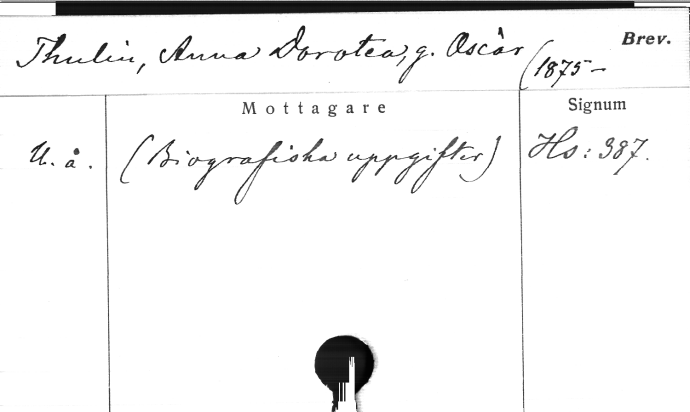 Thulin, Anna Dorotea, g. Oscàr (1875–
Brev.
Mottagare
Signum
U. å. (Biografiska uppgifter) Hs: 387.